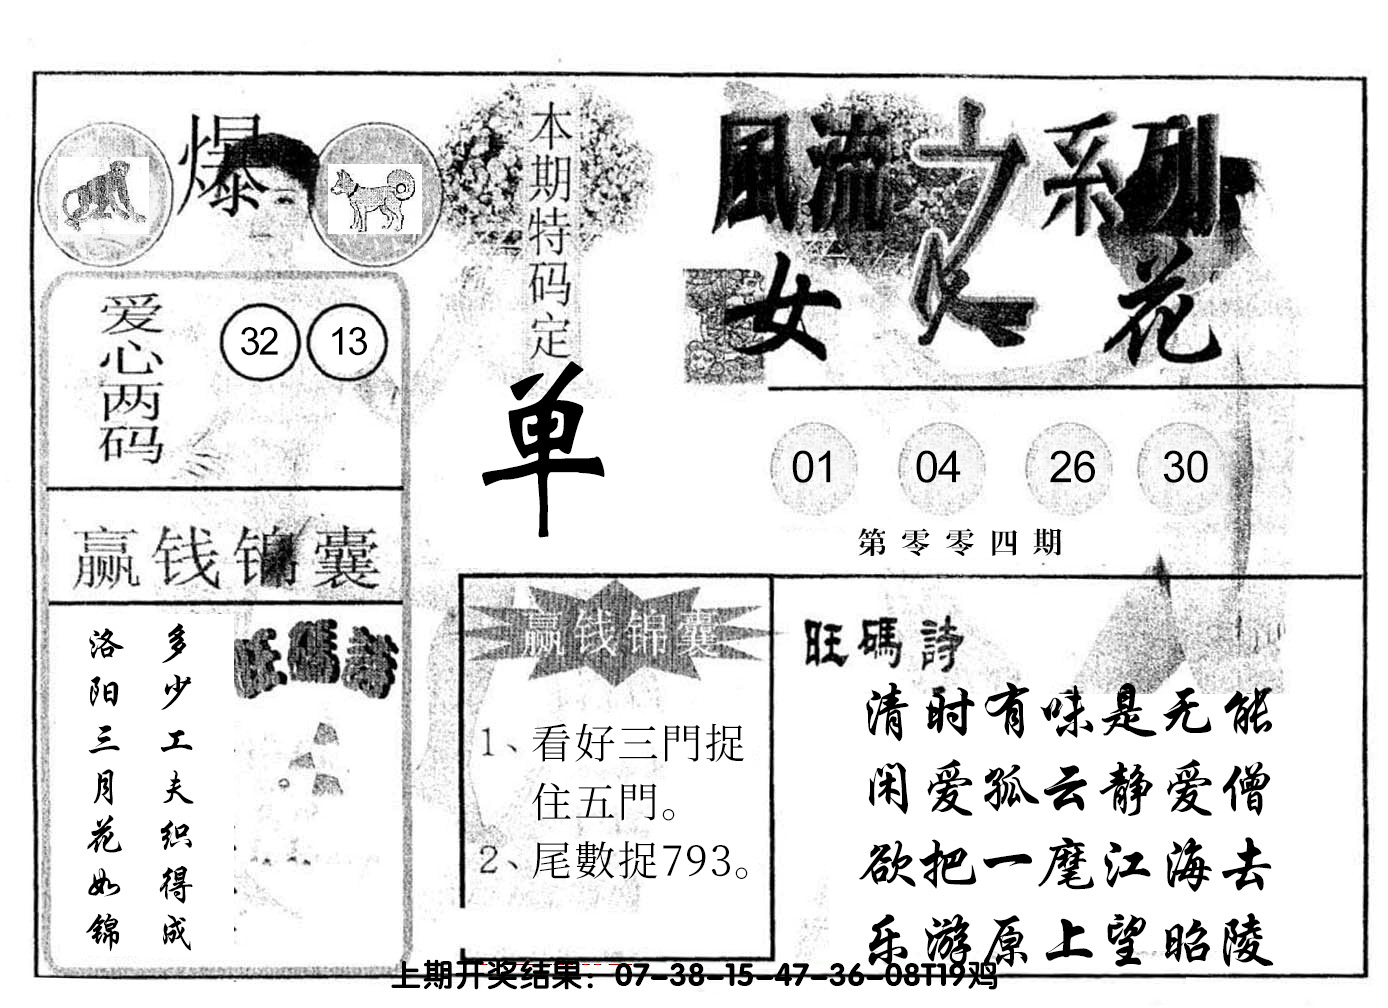 爆
本期特码定
单
風流之系列
女人花
爱心两码
32 13
赢钱锦囊
洛阳三月花如锦
多少工夫织得成
旺碼詩
01 04 26 30
第零零四期
赢钱锦囊
1、看好三門捉
住五門。
2、尾數捉793。
旺碼詩
清时有味是无能
闲爱孤云静爱僧
欲把一麾江海去
乐游原上望昭陵
上期开奖结果：07-38-15-47-36-08T19鸡